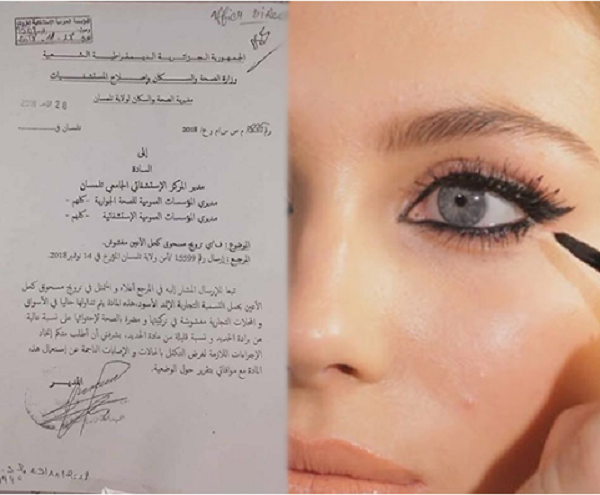 Affich Direct
المؤسسة العمومية الإستشفائية
الجمهورية الجزائرية الديمقراطية الشعبية
وزارة الصحة والسكان وإصلاح المستشفيات
مديرية الصحة والسكان لولاية تلمسان
28 2018
رقم م س س /م ر ع/ 2018 تلمسان في
إلى
السادة
مدير المركز الإستشفائي الجامعي تلمسان
مديري المؤسسات العمومية للصحة الجوارية -كلهم -
مديري المؤسسات العمومية الإستشفائية -كلهم -
الموضوع: ف/ي ترويج مسحوق كحل الأعين مغشوش.
المرجع: إرسال رقم 15599 /أمن ولاية تلمسان المؤرخ في 14 نوفمبر 2018.
تبعا للإرسال المشار إليه في المرجع أعلاه و المتمثل في ترويج مسحوق كحل
الأعين يحمل التسمية التجارية الإثمد الأسود،هذه المادة يتم تداولها حاليا في الأسواق
و المحلات التجارية مغشوشة في تركيبتها و مضرة بالصحة لإحتوائها على نسبة عالية
من برادة الحديد و نسبة قليلة من مادة الحديد، يشرفني أن أطلب منكم إتخاذ
الإجراءات اللازمة لغرض التكفل بالحالات و الإصابات الناجمة عن إستعمال هذه
المادة مع موافاتي بتقرير حول الوضعية.
المدير